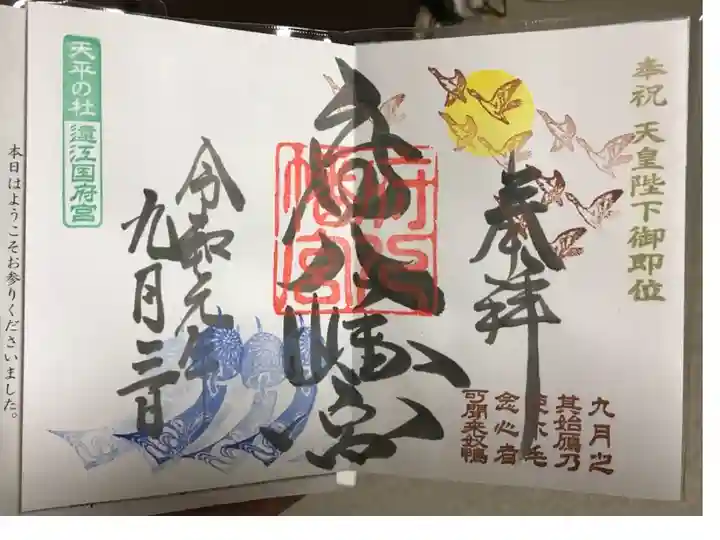 奉祝 天皇陛下御即位
奉拝
九月之
其始鴈乃
使尓毛
念心者
可聞来奴鴨
府八幡宮
府八
幡宮
令和元年
九月三日
天平の社
遠江国府宮
本日はようこそお参りくださいました。